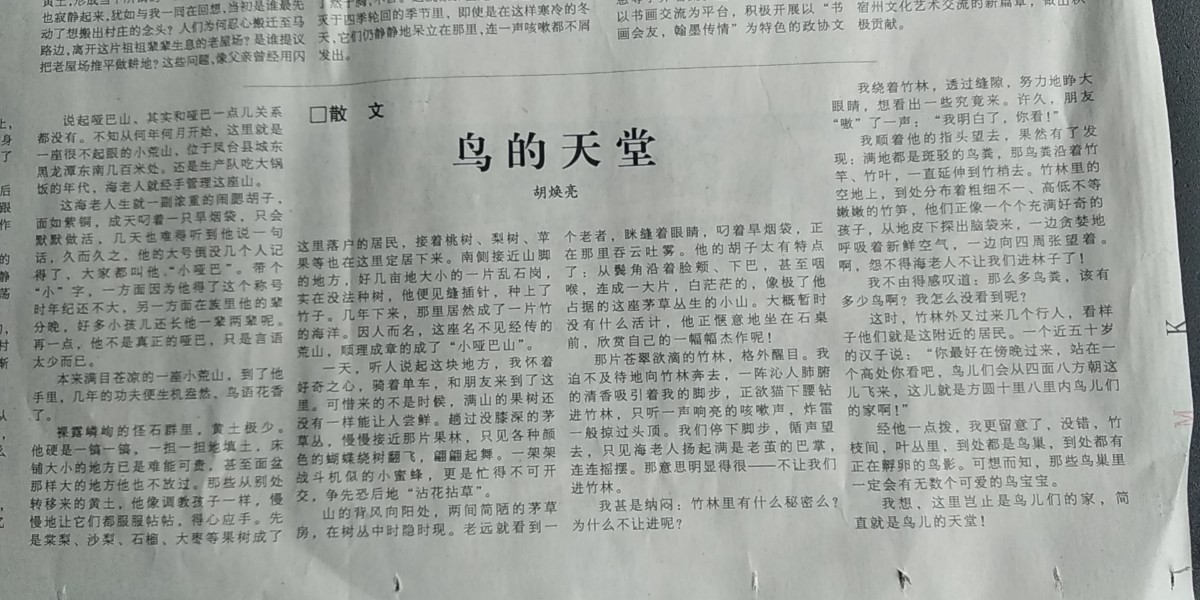 也寂静起来,犹如与我一同在回想,当初是谁最先
动了想搬出村庄的念头?人们为何忍心搬迁至马
路边,离开这片祖祖辈辈生息的老屋场?是谁提议
把老屋场推平做耕地?这些问题,像父亲曾经用闪
灭于四季轮回的季节里,即使是在这样寒冷的冬
天,它们仍静静地呆立在那里,连一声咳嗽都不屑
发出。
以书画交流为平台,积极开展以“书
画会友,翰墨传情”为特色的政协文
宿州文化艺术交流的新篇章,做出积
极贡献。
□散 文
鸟的天堂
胡焕亮
说起哑巴山、其实和哑巴一点儿关系
都没有。不知从何年何月开始,这里就是
一座很不起眼的小荒山,位于凤台县城东
黑龙潭东南几百米处。还是生产队吃大锅
饭的年代,海老人就经手管理这座山。
这海老人生就一副浓重的闹腮胡子,
面如紫铜,成天叼着一只旱烟袋,只会
默默做活,几天也难得听到他说一句
话,久而久之,他的大号倒没几个人记
得了,大家都叫他“小哑巴”。带个
“小”字,一方面因为他得了这个称号
时年纪还不大,另一方面在族里他的辈
分晚,好多小孩儿还长他一辈两辈呢。
再一点,他不是真正的哑巴,只是言语
太少而已。
本来满目苍凉的一座小荒山,到了他
手里,几年的功夫便生机盎然、鸟语花香
了。
裸露嶙峋的怪石群里,黄土极少。
他硬是一镐一镐,一担一担地填土,床
铺大小的地方已是难能可贵,甚至面盆
那样大的地方他也不放过。那些从别处
转移来的黄土,他像调教孩子一样,慢
慢地让它们都服服帖帖,得心应手。先
是棠梨、沙梨、石榴、大枣等果树成了
这里落户的居民,接着桃树、梨树、苹
果等也在这里定居下来。南侧接近山脚
的地方,好几亩地大小的一片乱石岗,
实在没法种树,他便见缝插针,种上了
竹子。几年下来,那里居然成了一片竹
的海洋。因人而名,这座名不见经传的
荒山,顺理成章的成了“小哑巴山”。
一天,听人说起这块地方,我怀着
好奇之心,骑着单车,和朋友来到了这
里。可惜来的不是时候,满山的果树还
没有一样能让人尝鲜。趟过没膝深的茅
草丛,慢慢接近那片果林,只见各种颜
色的蝴蝶绕树翻飞,翩翩起舞。一架架
战斗机似的小蜜蜂,更是忙得不可开
交,争先恐后地“沾花拈草”。
山的背风向阳处,两间简陋的茅草
房,在树丛中时隐时现。老远就看到一
个老者,眯缝着眼睛,叼着旱烟袋,正
在那里吞云吐雾。他的胡子太有特点
了:从鬓角沿着脸颊、下巴,甚至咽
喉,连成一大片,白茫茫的,像极了他
占据的这座茅草丛生的小山。大概暂时
没有什么活计,他正惬意地坐在石桌
前,欣赏自己的一幅幅杰作呢!
那片苍翠欲滴的竹林,格外醒目。我
迫不及待地向竹林奔去,一阵沁人肺腑
的清香吸引着我的脚步,正欲猫下腰钻
进竹林,只听一声响亮的咳嗽声,炸雷
一般掠过头顶。我们停下脚步,循声望
去,只见海老人扬起满是老茧的巴掌,
连连摇摆。那意思明显得很——不让我们
进竹林。
我甚是纳闷:竹林里有什么秘密么?
为什么不让进呢?
我绕着竹林,透过缝隙,努力地睁大
眼睛,想看出一些究竟来。许久,朋友
“嗷”了一声:“我明白了,你看!”
我顺着他的指头望去,果然有了发
现:满地都是斑驳的鸟粪,那鸟粪沿着竹
竿、竹叶,一直延伸到竹梢去。竹林里的
空地上,到处分布着粗细不一、高低不等
嫩嫩的竹笋,他们正像一个个充满好奇的
孩子,从地皮下探出脑袋来,一边贪婪地
呼吸着新鲜空气,一边向四周张望着。
啊,怨不得海老人不让我们进林子了!
我不由得感叹道:那么多鸟粪,该有
多少鸟啊?我怎么没看到呢?
这时,竹林外又过来几个行人,看样
子他们就是这附近的居民。一个近五十岁
的汉子说:“你最好在傍晚过来,站在一
个高处你看吧,鸟儿们会从四面八方朝这
儿飞来,这儿就是方圆十里八里内鸟儿们
的家啊!”
经他一点拨,我更留意了,没错,竹
枝间,叶丛里,到处都是鸟巢,到处都有
正在孵卵的鸟影。可想而知,那些鸟巢里
一定会有无数个可爱的鸟宝宝。
我想,这里岂止是鸟儿们的家,简
直就是鸟儿的天堂!